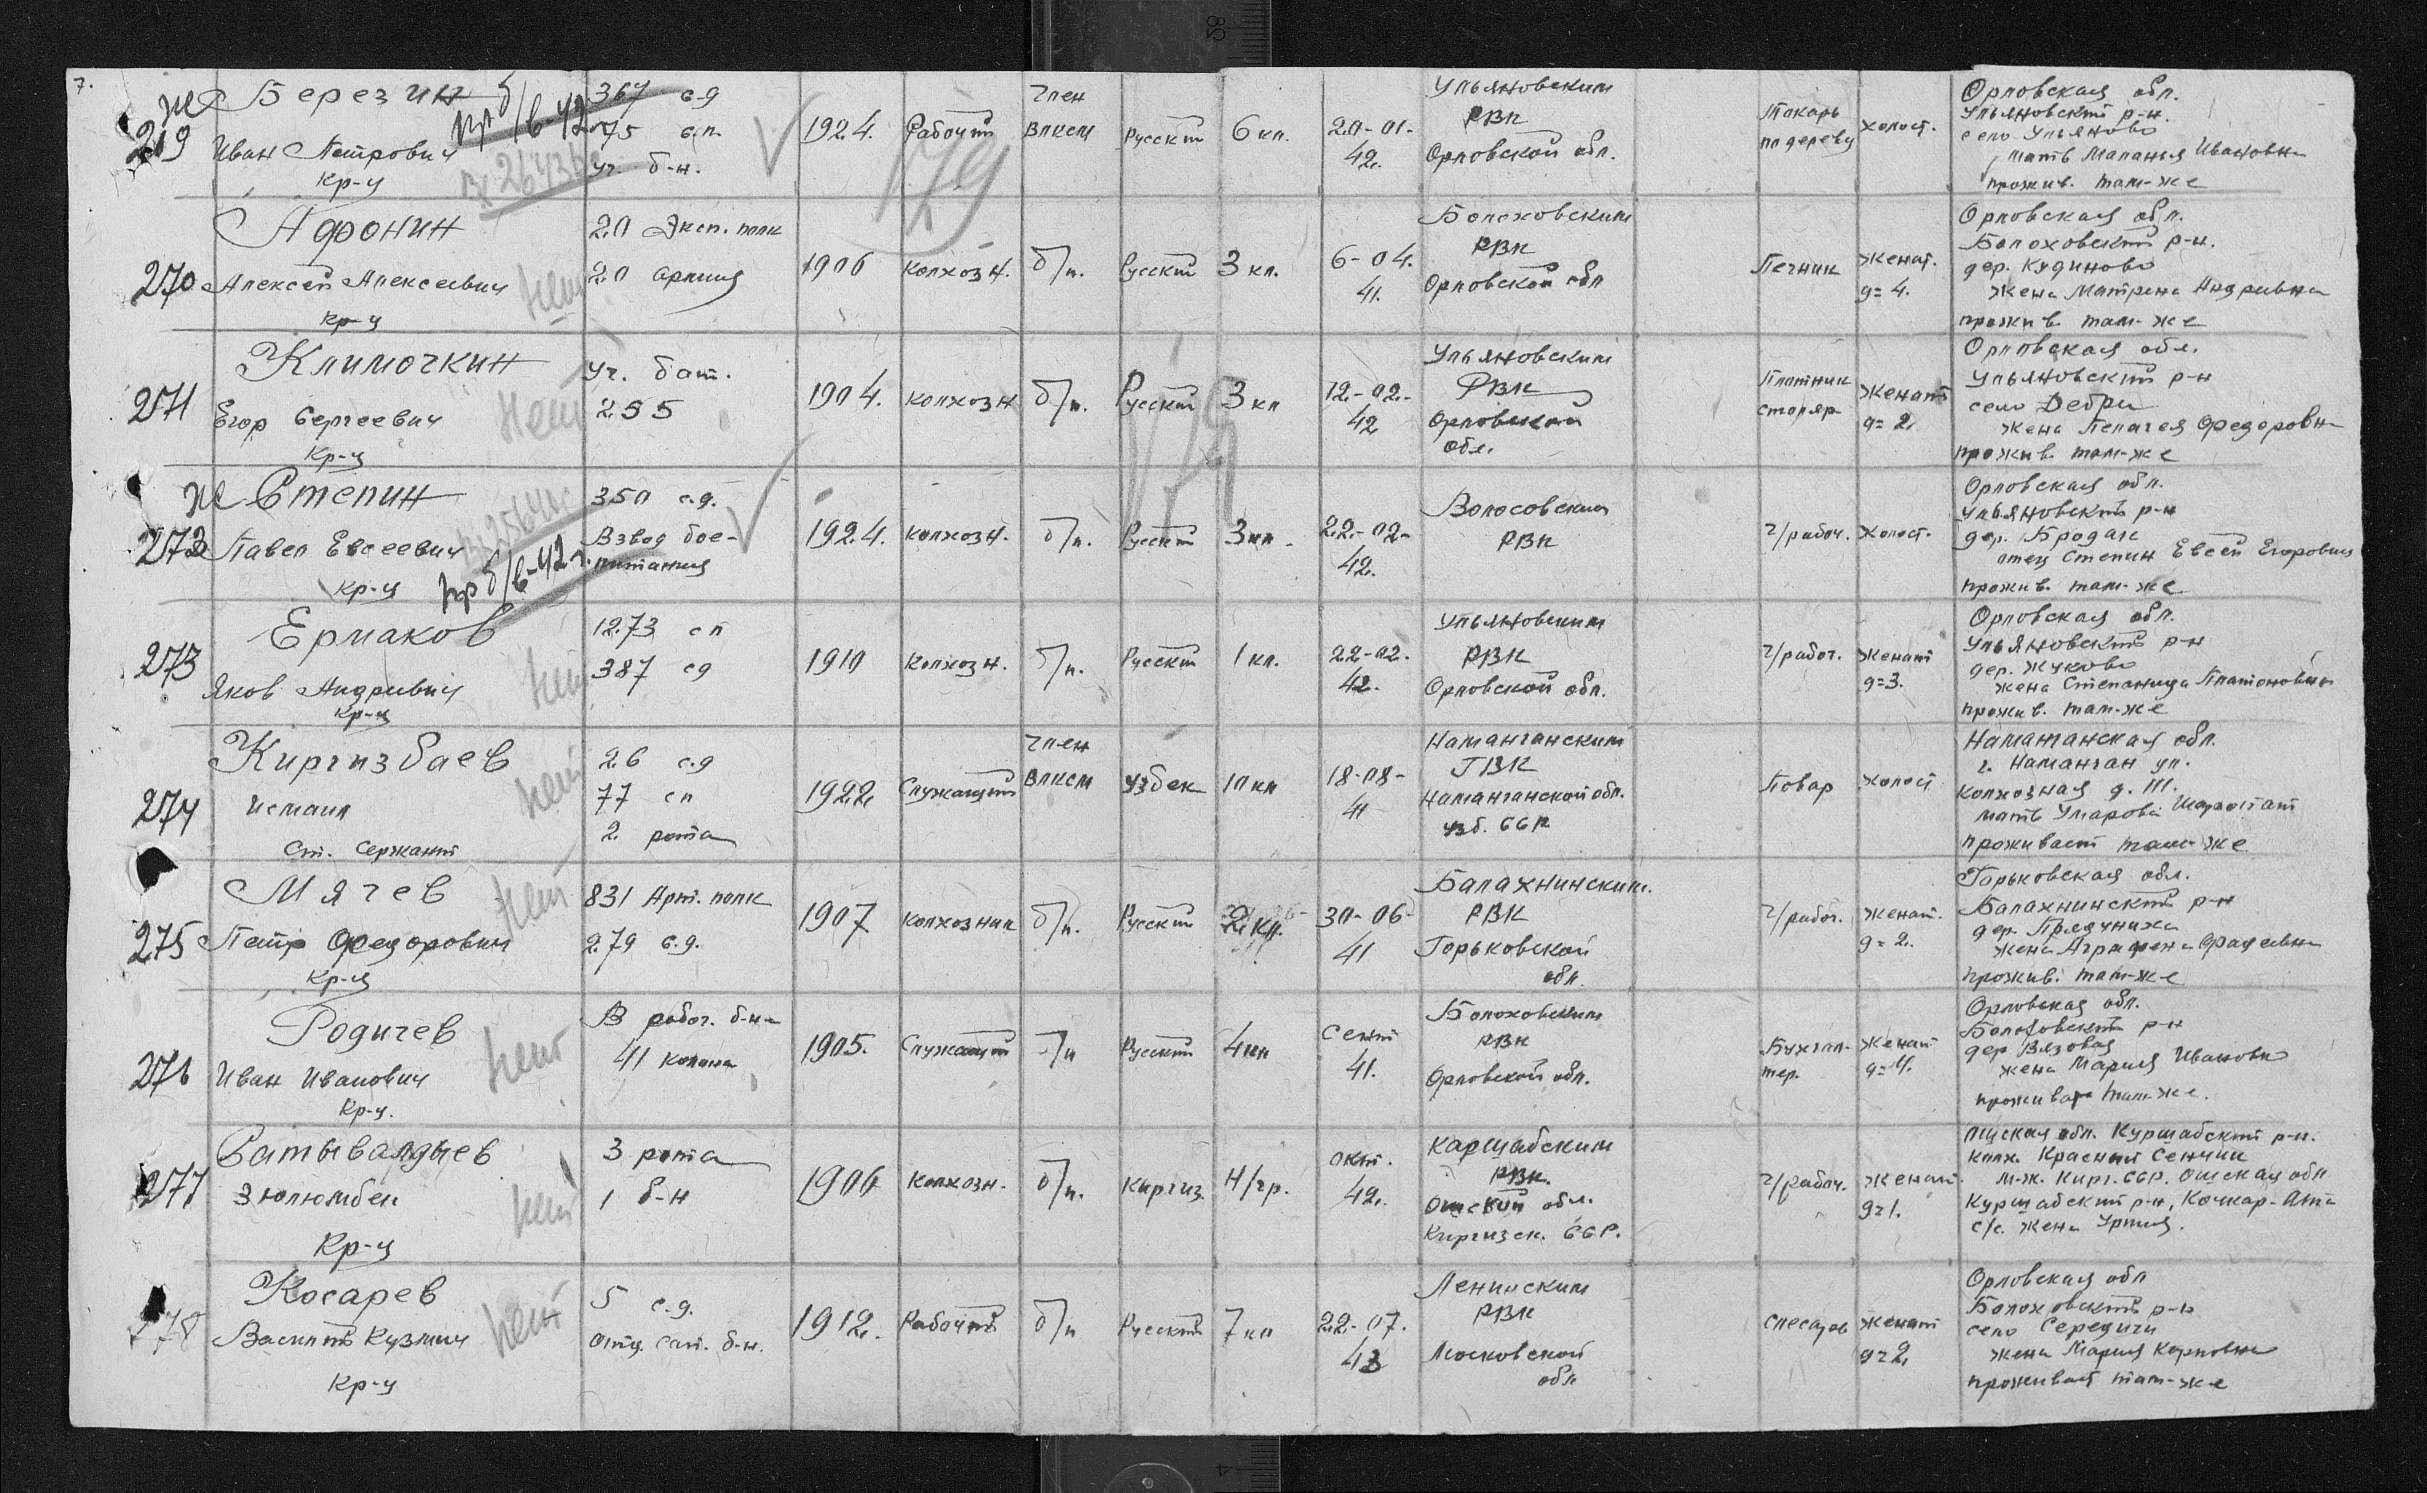 7.
Березин
Иван Петрович
кр-ц
пр б/в-42 г.
367 с.д
75 с.п.
уч. б-н.
1924.
Рабочий
Член
ВЛКСМ
Русский
6 кл.
20-01-
42.
Ульяновским
РВК
Орловской обл.
Токарь
по дереву
холост.
Орловская обл.
Ульяновский р-н.
село Ульяново
мать Маланья Ивановна
прожив. там-же
270
Афонин
Алексей Алексеевич
кр-ц
нет
20 Эксп. полк
20 армия
1906
колхозн.
б/п.
Русский
3 кл.
6-04.
41.
Болоховским
РВК
Орловской обл
Печник
женат.
д=4.
Орловская обл.
Болоховский р-н.
дер. Кудиново
жена Матрена Андреевна
прожив там-же
271
Климочкин
Егор Сергеевич
кр-ц
нет
Уч. бат.
255
1904.
колхозн
б/п.
Русский
3 кл
12-02-
42
Ульяновским
РВК
Орловской
обл.
Плотник
столяр
женат
д=2.
Орловская обл.
Ульяновский р-н
село Дебри
жена Пелагея Федоровн
прожив. там-же
272
Степин
Павел Евсеевич
кр-ц
пр б/в-42 г.
350 с.д.
Взвод бое-
питания
1924.
колхозн.
б/п.
Русский
3 кл.
22-02-
42.
Волосовским
РВК
ч/рабоч.
холост.
Орловская обл.
Ульяновский р-н
дер. Бродак
отец Степин Евсей Егорович
прожив. там-же
273
Ермаков
Яков Андреевич
кр-ц
нет
1273 сп
387 сд
1910
колхозн.
б/п.
Русский
1 кл.
22-02-
42.
Ульяновским
РВК
Орловской обл.
ч/рабоч.
женат
д=3.
Орловская обл.
Ульяновский р-н
дер. Жуково
жена Степанида Платоновна
прожив. там-же
274
Киргизбаев
Исмаил
Ст. Сержант
нет
26 с.д
77 сп
2 рота
1922
Служащий
Член
ВЛКСМ
Узбек
10 кл
18-08-
41
Наманганским
ГВК
Наманганской обл.
Узб. ССР
Повар
холост
Наманганская обл.
г. Наманган ул.
Колхозная д.
мать Умарова
проживает там-же
275
Мячев
Петр Федорович
кр-ц
нет
831 Арт. полк
279 с.д.
1907
колхозник
б/п.
Русский
2 кл.
30-06-
41
Балахнинским.
РВК
Горьковской
обл.
ч/рабоч.
женат.
д=2.
Горьковская обл.
Балахнинский р-н
дер.
жена Аграфена Фадеевна
прожив. там-же
276
Родичев
Иван Иванович
кр-ц.
нет
В рабоч. б-не
41 колона
1905.
Служащий
б/п
Русский
4 кл
Сент
41.
Болоховским
РВК
Орловской обл.
Бухгал-
тер.
женат
д=4.
Орловская обл.
Болоховский р-н
дер Вязовая
жена Мария Ивановн
прожива там-же.
277
Сатывалдыев
Зюлюмбек
кр-ц
нет
3 рота
1 б-н
1906
колхозн.
б/п.
киргиз
Н/гр.
окт.
42.
Каршабским
РВК.
Ошской обл.
Киргизск. ССР.
ч/рабоч.
женат.
д=1.
Ошская обл. Куршабский р-н.
колх. Красный
м-ж. Кирг. ССР. Ошская обл
Куршабский р-н, Кочкар-Ата
с/с. жена
278
Косарев
Василий Кузмич
кр-ц
нет
5 с.д.
Отд. сап. б-н.
1912.
Рабочий
б/п
Русский
7 кл
22-07.
43
Ленинским
РВК
Московской
обл
слесарь
женат
д=2.
Орловская обл
Болоховский р-н
село Середичи
жена Мария Карповна
проживает там-же